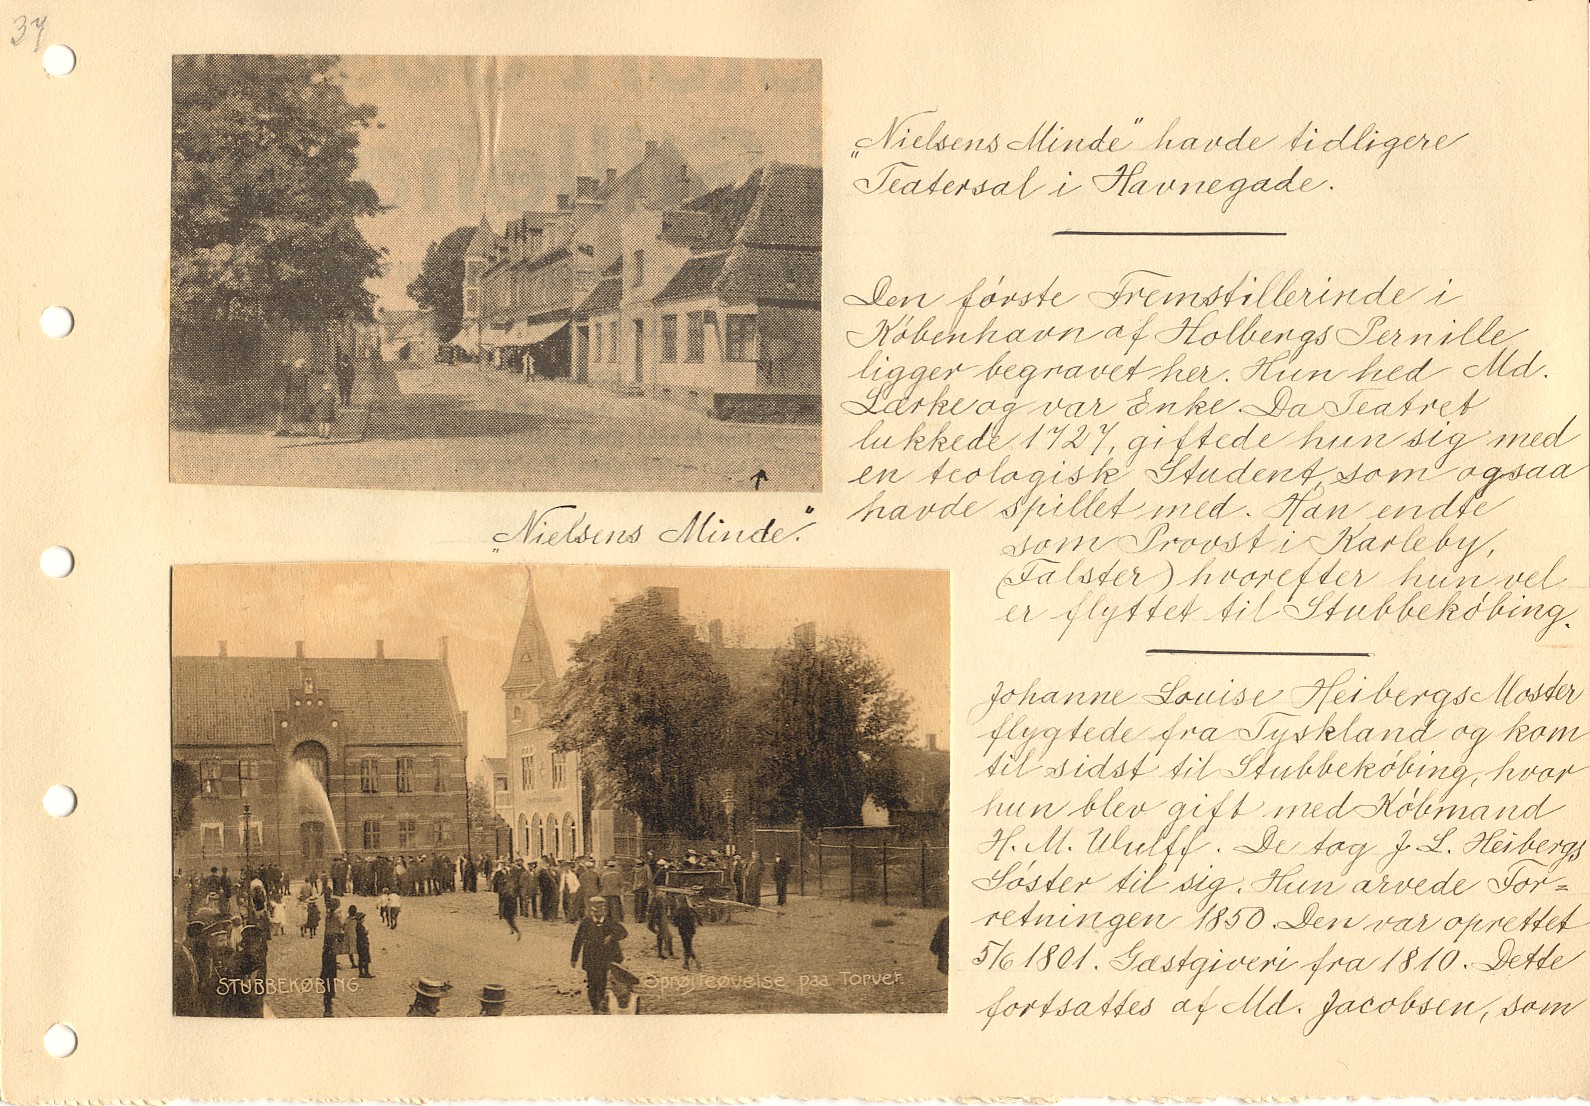 37
„Nielsens Minde" havde tidligere
Teatersal i Havnegade.
Den første Fremstillerinde i
København af Holbergs Pernille
ligger begravet her. Hun hed Md.
Lærke og var Enke. Da Teatret
lukkede 1727, giftede hun sig med
en teologisk Student, som ogsaa
havde spillet med. Han endte
som Provst i Karleby,
(Falster) hvorefter hun vel
er flyttet til Stubbekøbing.
„Nielsens Minde."
Johanne Louise Heibergs Moster
flygtede fra Tyskland og kom
til sidst til Stubbekøbing, hvor
hun blev gift med Købmand
H. M. Wulff. De tog J. L. Heibergs
Søster til sig. Hun arvede For=
retningen 1850. Den var oprettet
5/6 1801. Gæstgiveri fra 1810. Dette
fortsattes af Md. Jacobsen, som
STUBBEKØBING.
Sprøjteøvelse paa Torvet.